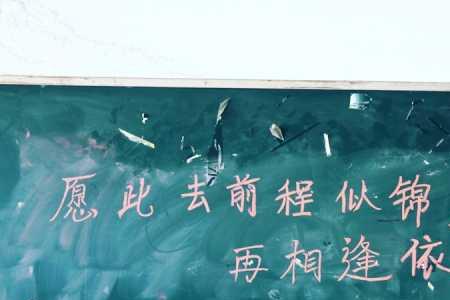 愿此去前程似锦
再相逢依